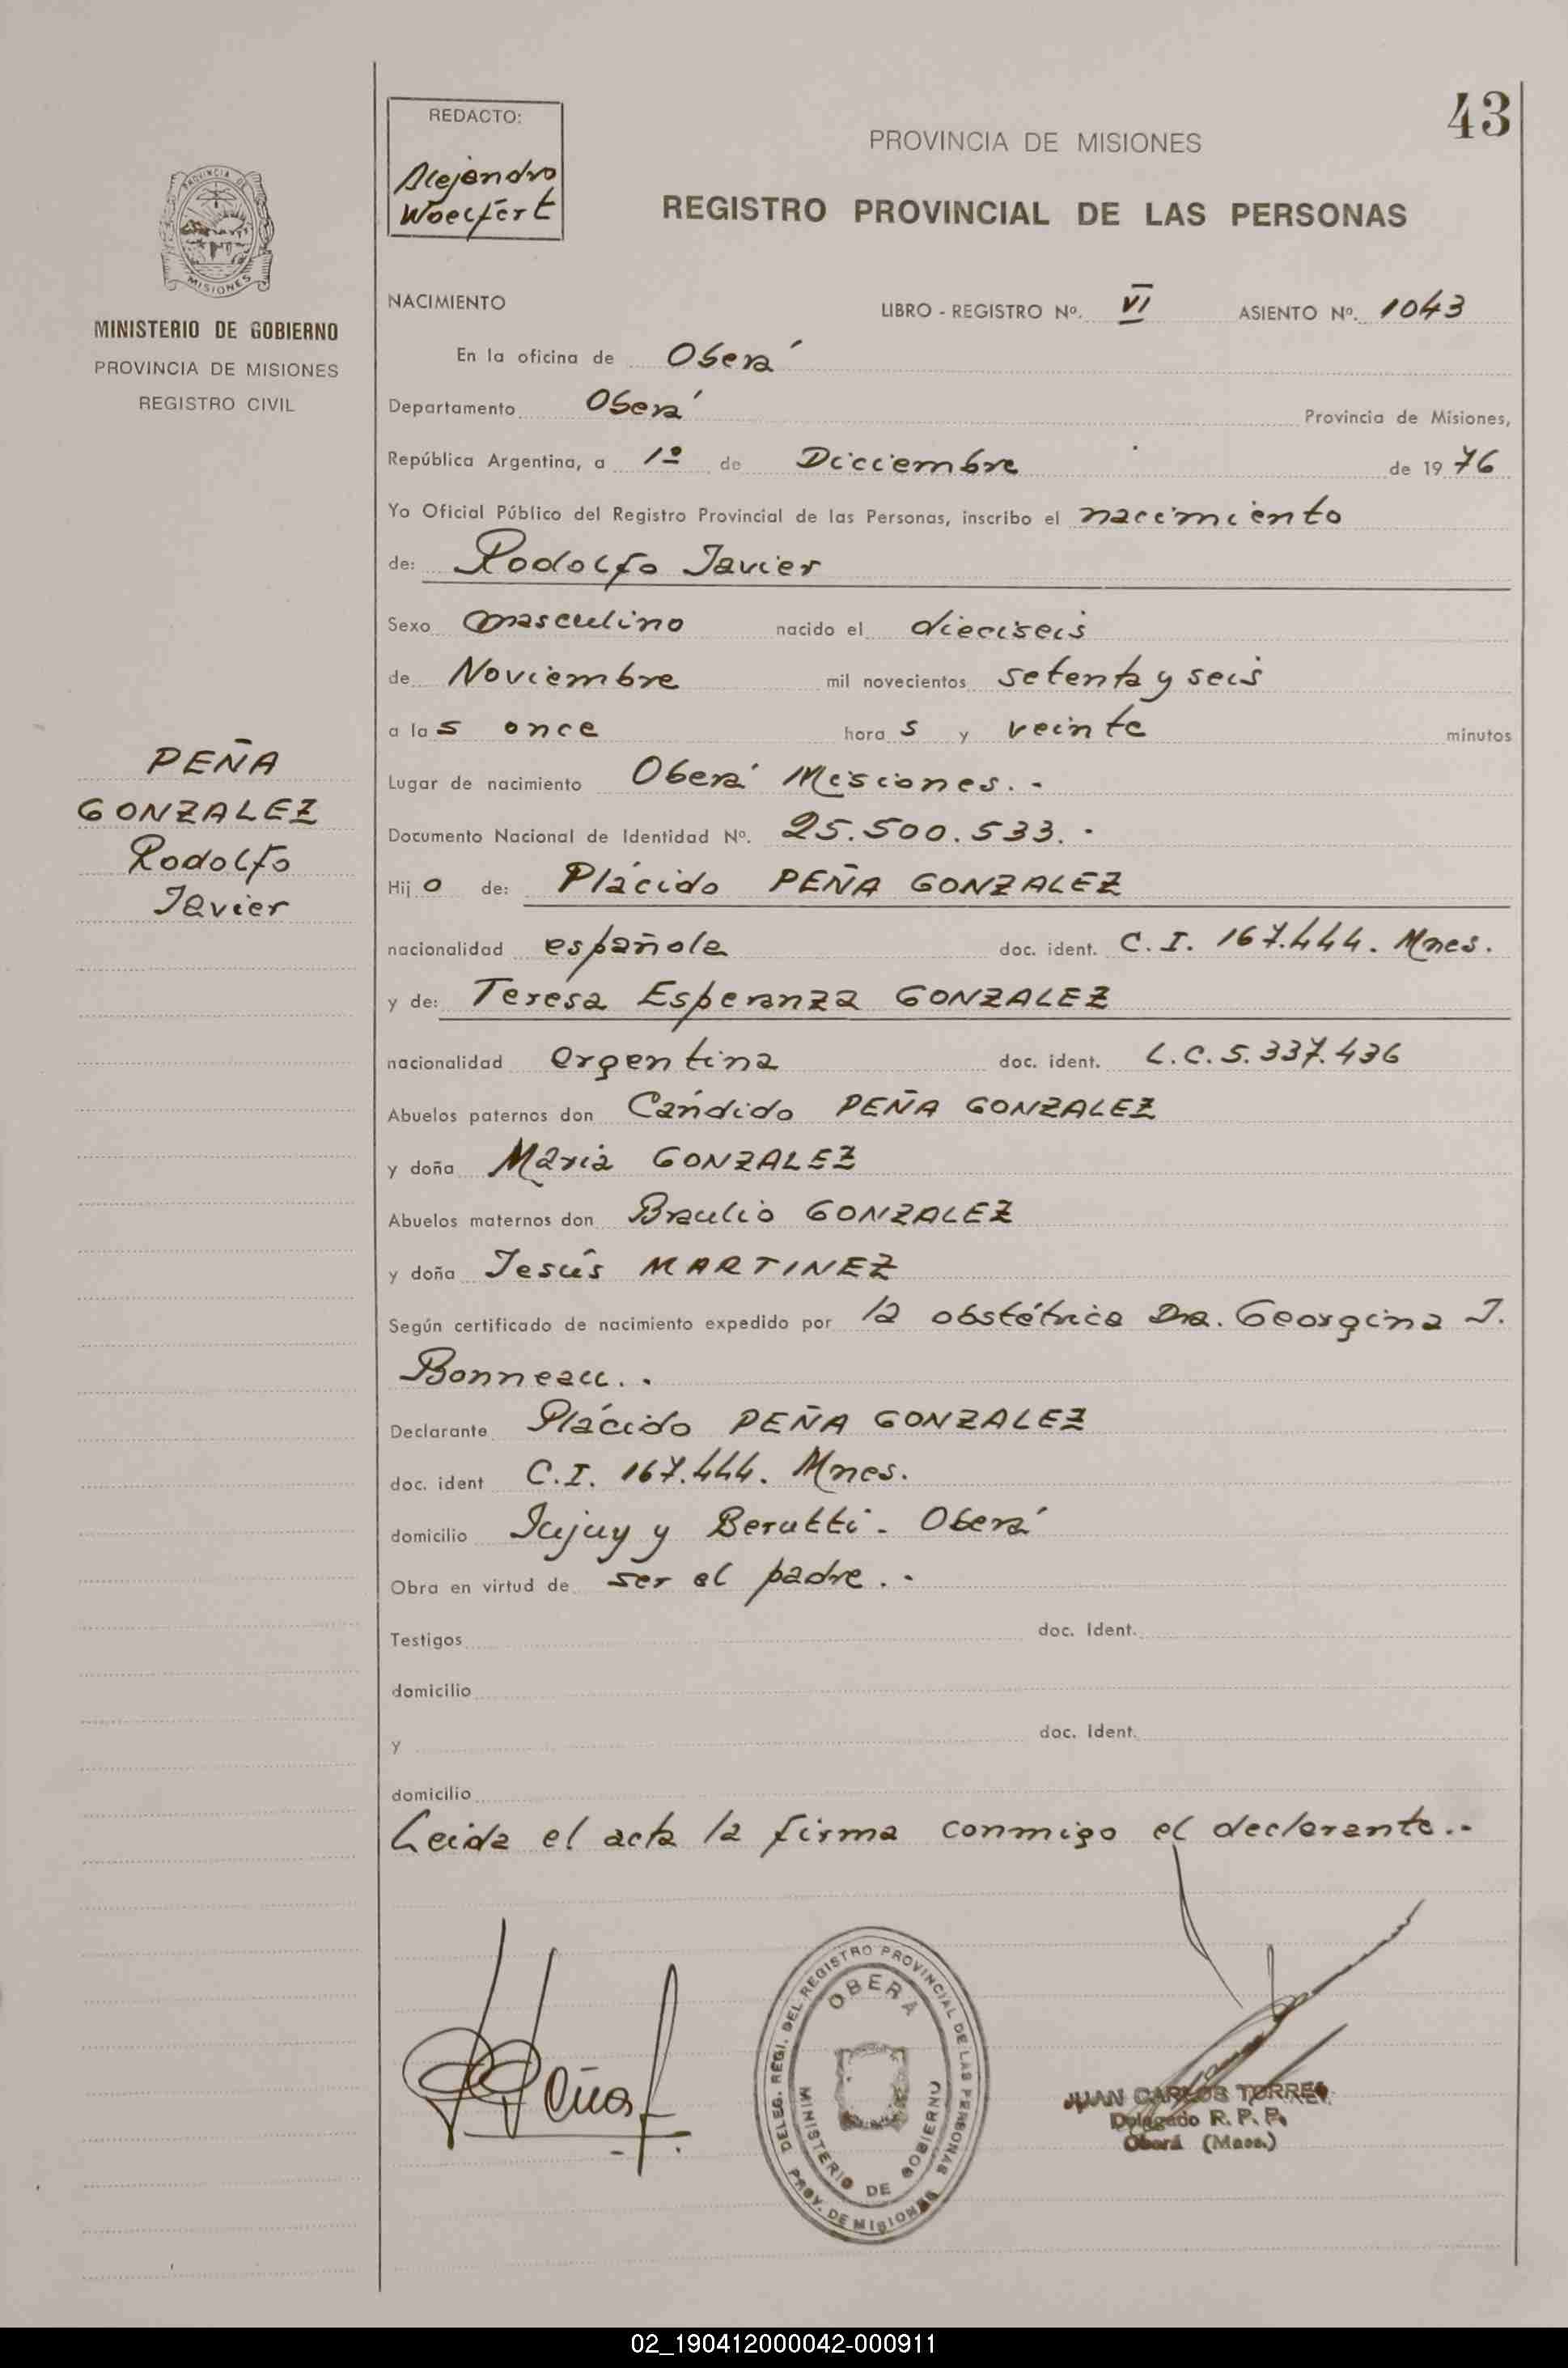 43
REDACTO:
Alejandro
Woelfert
PROVINCIA DE MISIONES
REGISTRO PROVINCIAL DE LAS PERSONAS
PROVINCIA DE
MISIONES
MINISTERIO DE GOBIERNO
PROVINCIA DE MISIONES
REGISTRO CIVIL
PEÑA
GONZALEZ
Rodolfo
Javier
NACIMIENTO LIBRO - REGISTRO Nº. VI ASIENTO Nº. 1043
En la oficina de Oberá
Departamento Oberá Provincia de Misiones,
República Argentina, a 1º de Diciembre de 1976
Yo Oficial Público del Registro Provincial de las Personas, inscribo el nacimiento
de: Rodolfo Javier
Sexo masculino nacido el dieciseis
de Noviembre mil novecientos setenta y seis
a las once horas y veinte minutos
Lugar de nacimiento Oberá Misiones.-
Documento Nacional de Identidad Nº. 25.500.533.-
Hijo de: Plácido PEÑA GONZALEZ
nacionalidad española doc. ident. C.I. 167.444. Mnes.
y de: Teresa Esperanza GONZALEZ
nacionalidad argentina doc. ident. L.C.5.337.436
Abuelos paternos don Cándido PEÑA GONZALEZ
y doña María GONZALEZ
Abuelos maternos don Braulio GONZALEZ
y doña Jesús MARTINEZ
Según certificado de nacimiento expedido por la obstétrica Dra. Georgina J.
Bonneau.-
Declarante Plácido PEÑA GONZALEZ
doc. ident C.I. 167.444. Mnes.
domicilio Jujuy y Berutti - Oberá
Obra en virtud de ser el padre.-
Testigos doc. Ident.
domicilio
y doc. Ident.
domicilio
Leida el acta la firma conmigo el declarante.-
Peña
DELEG. REGI. DEL REGISTRO PROVINCIAL DE LAS PERSONAS
PROV. DE MISIONES
OBERÁ
MINISTERIO DE GOBIERNO
JUAN CARLOS TORRES
Delegado R. P. P.
Oberá (Mnes.)
02_190412000042-000911